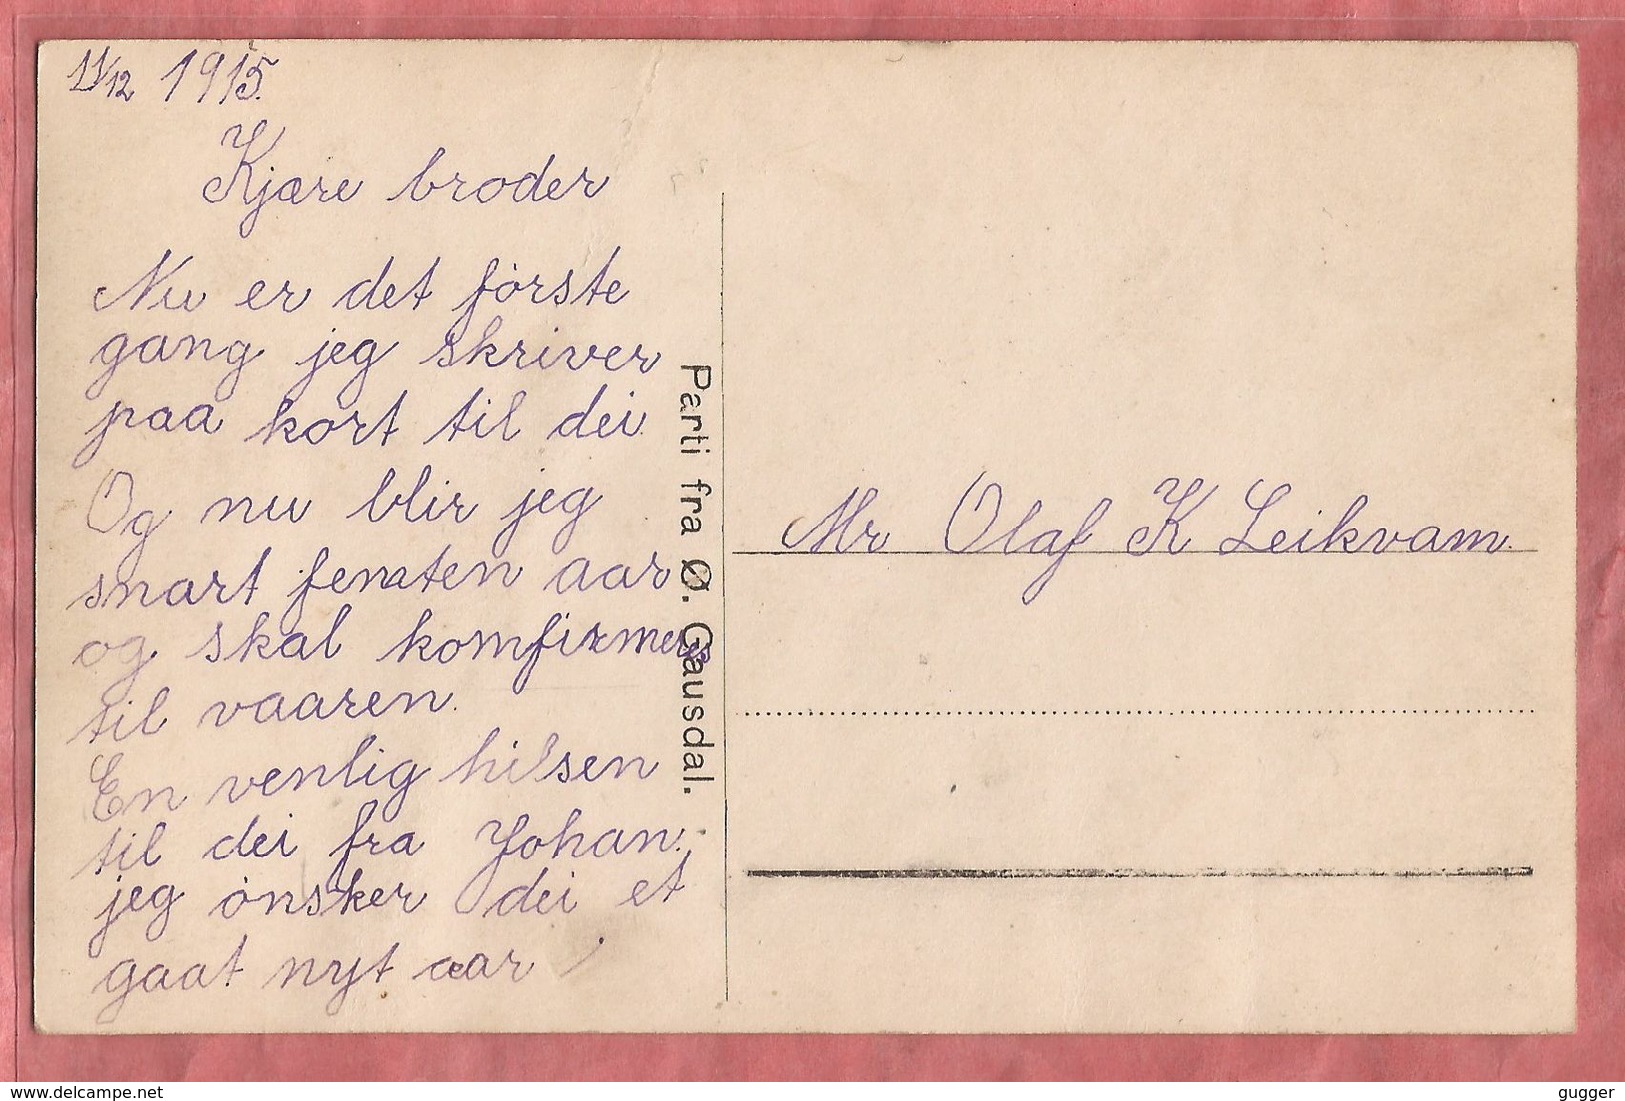 11/12 1915.
Kjære broder
Nu er det förste
gang jeg skriver
paa kort til dei.
Og nu blir jeg
snart femten aar
og skal komfirmeres
til vaaren.
En venlig hilsen
til dei fra Johan.
jeg önsker dei et
gaat nyt aar
Parti fra Ø. Gausdal.
Mr Olaf K Leikvam.
www.delcampe.net
gugger